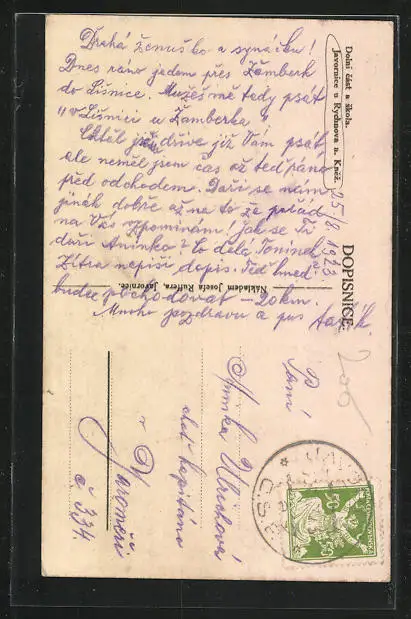 Drahá ženuško a synáčku!
Dnes ráno jedem přes Žamberk
do Lišnice. Můžeš mě tedy psát
"v Lišnici u Žamberka"
Chtěl jsem dříve již Vám psát,
ale neměl jsem čas až teď ráno
před odchodem. Daří se nám
jinák dobře až na to že pořád
na Vás vzpomínám! Jak se Ti
daří Aninko? Co dělá Toníček?
Zítra napíši dopis. Teď hned
budem pochodovat – 20 km.
Mnoho pozdravů a pus
Dolní část a škola.
Javornice u Rychnova n. Kněž.
25/8 1923
DOPISNICE.
Nákladem Josefa Ruffera, Javornice.
200
Paní
Aninka Ulrichová
choť kapitána
v Jaroměři
č. 334
50 50